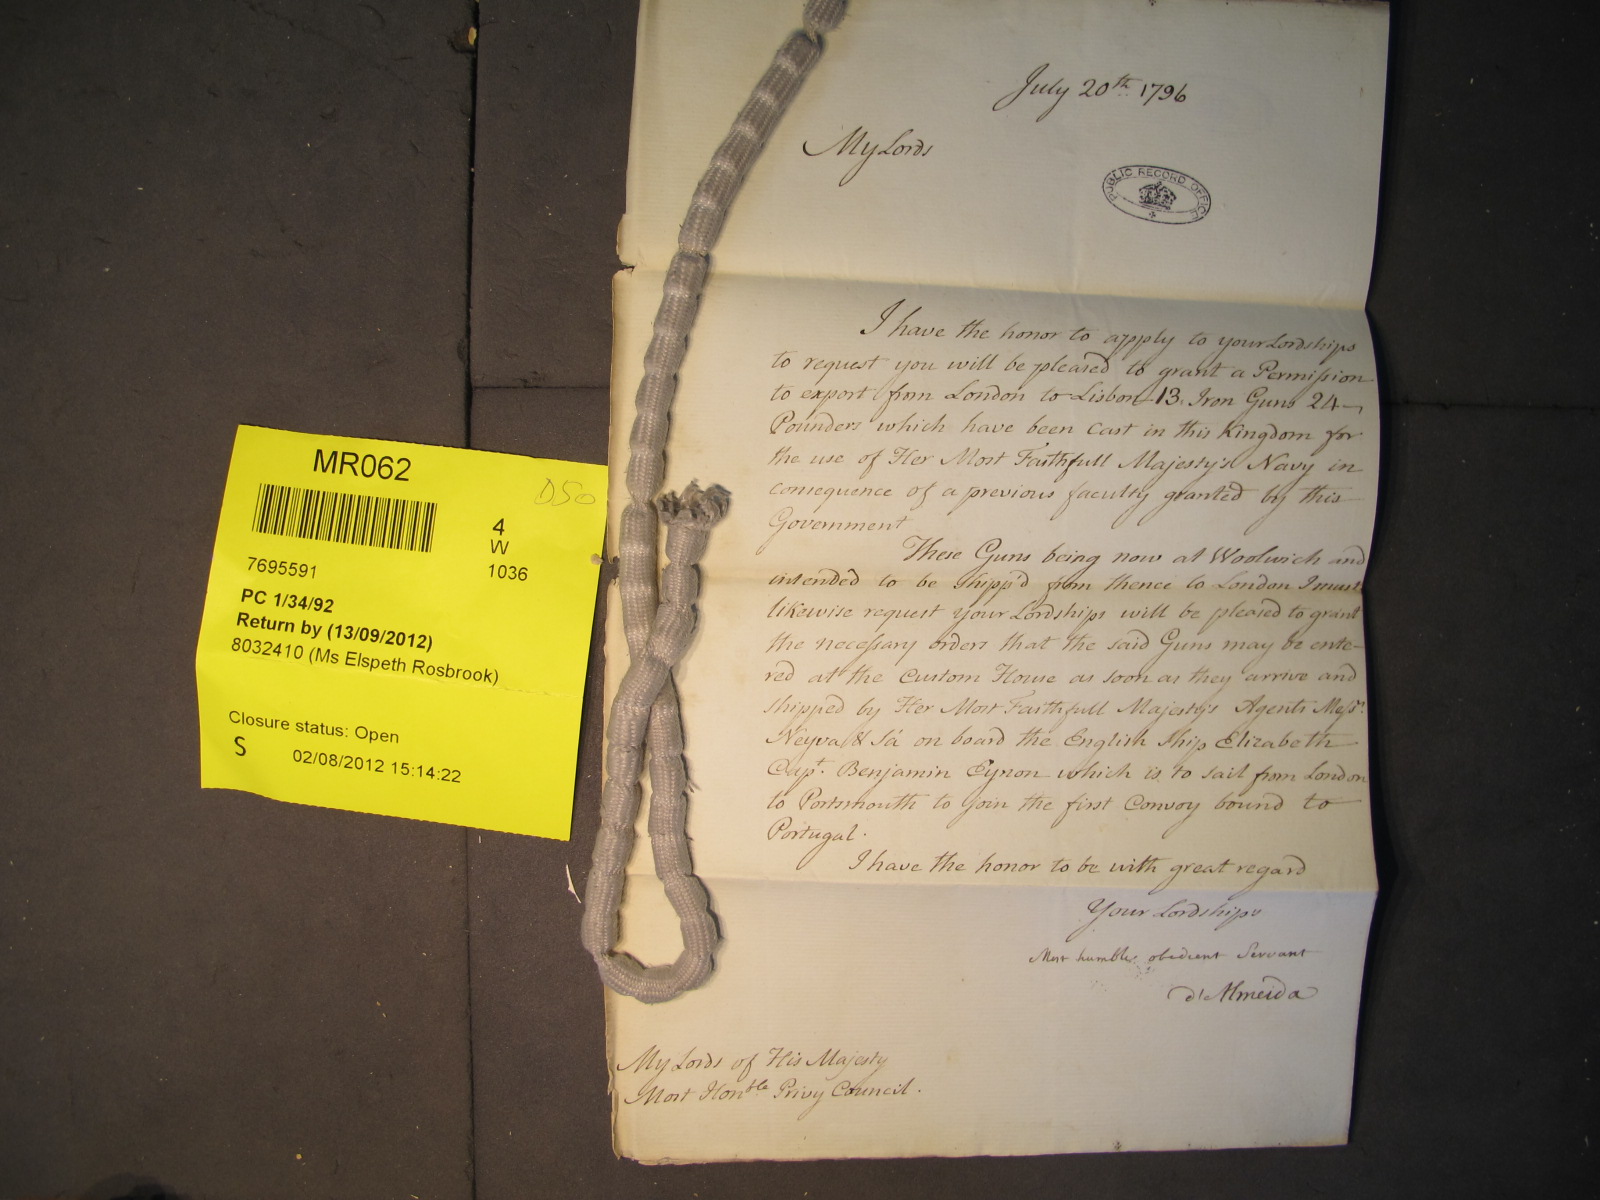 July 20th 1796
My Lords
PUBLIC RECORD OFFICE
I have the honor to apply to your Lordships
to request you will be pleased to grant a Permission
to export from London to Lisbon 13 Iron Guns 24
Pounders which have been Cast in this Kingdom for
the use of Her Most Faithfull Majesty's Navy in
consequence of a previous faculty granted by this
Government
These Guns being now at Woolwich and
intended to be shipp'd from thence to London I must
likewise request your Lordships will be pleased to grant
the necessary orders that the said Guns may be ente-
red at the Custom House as soon as they arrive and
shipped by Her Most Faithfull Majesty's Agents Messrs.
Neyva & Sá on board the English ship Elizabeth
Capt. Benjamin Eynon which is to sail from London
to Portsmouth to join the first Convoy bound to
Portugal.
I have the honor to be with great regard
Your Lordships
Most humble obedient Servant
d'Almeida
My Lords of His Majesty
Most Honble Privy Council.
MR062
D50
4
W
1036
7695591
PC 1/34/92
Return by (13/09/2012)
8032410 (Ms Elspeth Rosbrook)
Closure status: Open
S
02/08/2012 15:14:22